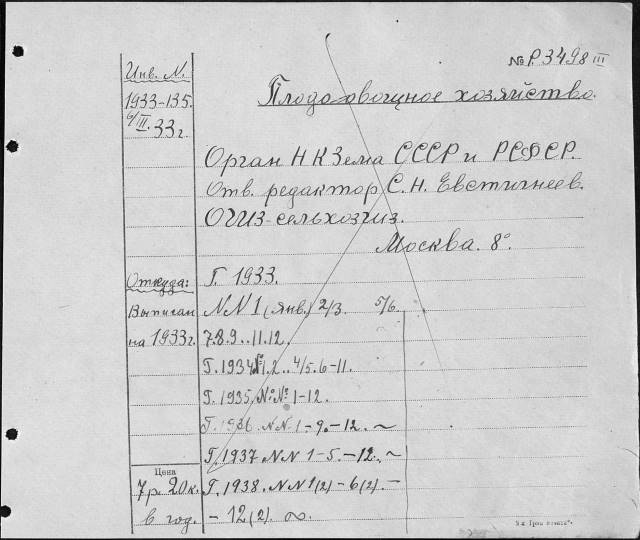 № Р. 3498 III
Инв. N.
1933-135.
6/III. 33 г.
Плодоовощное хозяйство.
Орган НКЗема СССР и РСФСР.
Отв. редактор С. Н. Евстигнеев.
ОГИЗ-сельхозгиз.
Москва. 8°.
Откуда:
Выписан
на 1933 г.
Г. 1933.
NN 1 (янв.) 2/3. 5/6.
7.8.9..11.12.
Г. 1934 № 1.2.. 4/5.6-11.
Г. 1935. №№ 1-12.
Г. 1936. NN. 1-9.-12. ~
Г. 1937 NN 1-5.-12. ~
Цена
7 р. 20 к.
в год.
Г. 1938. NN 1(2)-6(2). -
- 12(2). ∞.